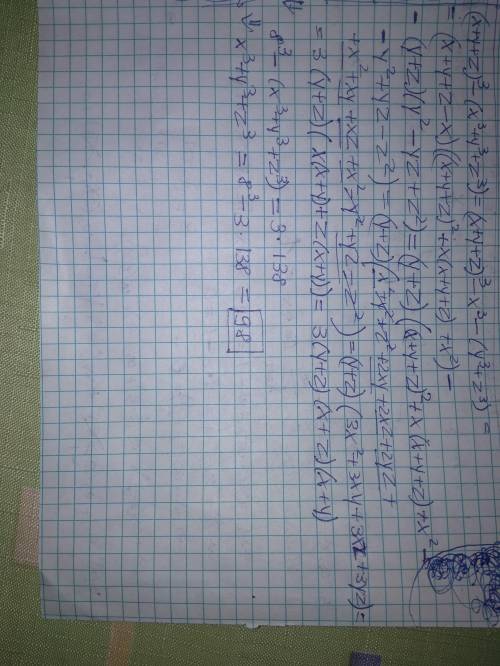 (x+y+z)³ - (x³+y³+z³) = (x+y+z)³ - x³ - (y³+z³) =
= (x+y+z-x)((x+y+z)² + x(x+y+z) + x²) -
- (y+z)(y² - yz + z²) = (y+z)((x+y+z)² + x(x+y+z) + x² -
- y² + yz - z²) = (y+z)(x²+y²+z²+2xy+2xz+2yz+
+x²+xy+xz+x²-y²+yz-z²) = (y+z)(3x²+3xy+3xz+3yz) =
= 3(y+z)(x(x+y)+z(x+y)) = 3(y+z)(x+z)(x+y)
⇓
8³ - (x³+y³+z³) = 3·138
⇓
x³+y³+z³ = 8³ - 3·138 = 98